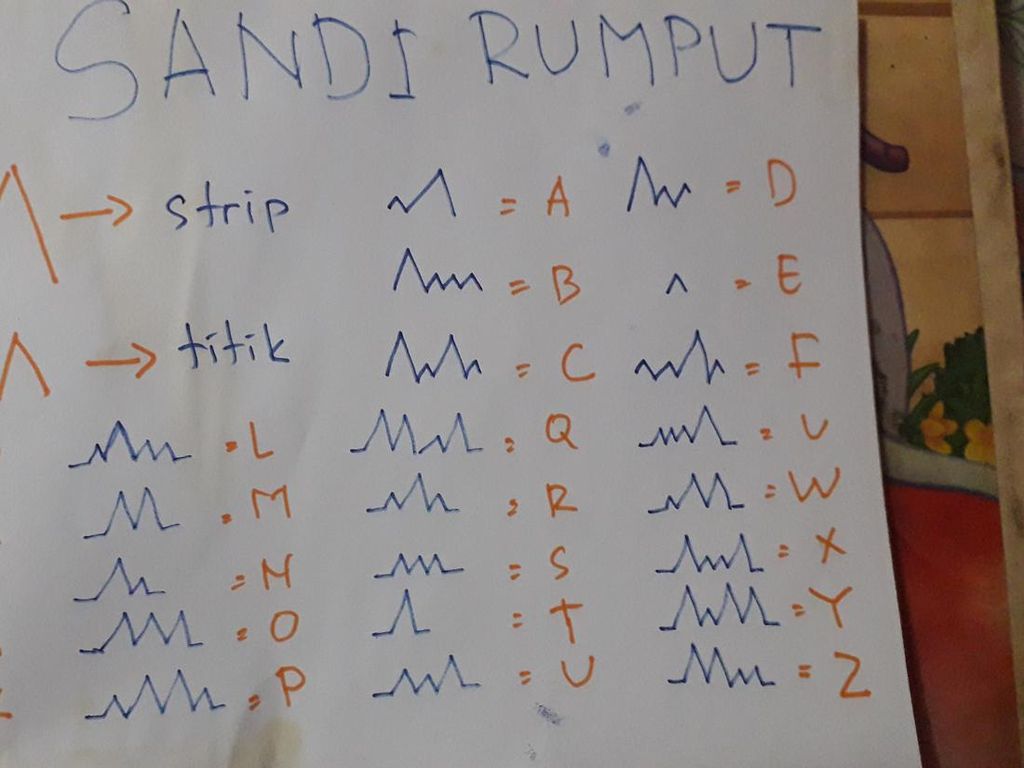 SANDI RUMPUT
→ strip = A = D
= B = E
→ titik = C = F
= L = Q = U
= M = R = W
= N = S = X
= O = T = Y
= P = U = Z